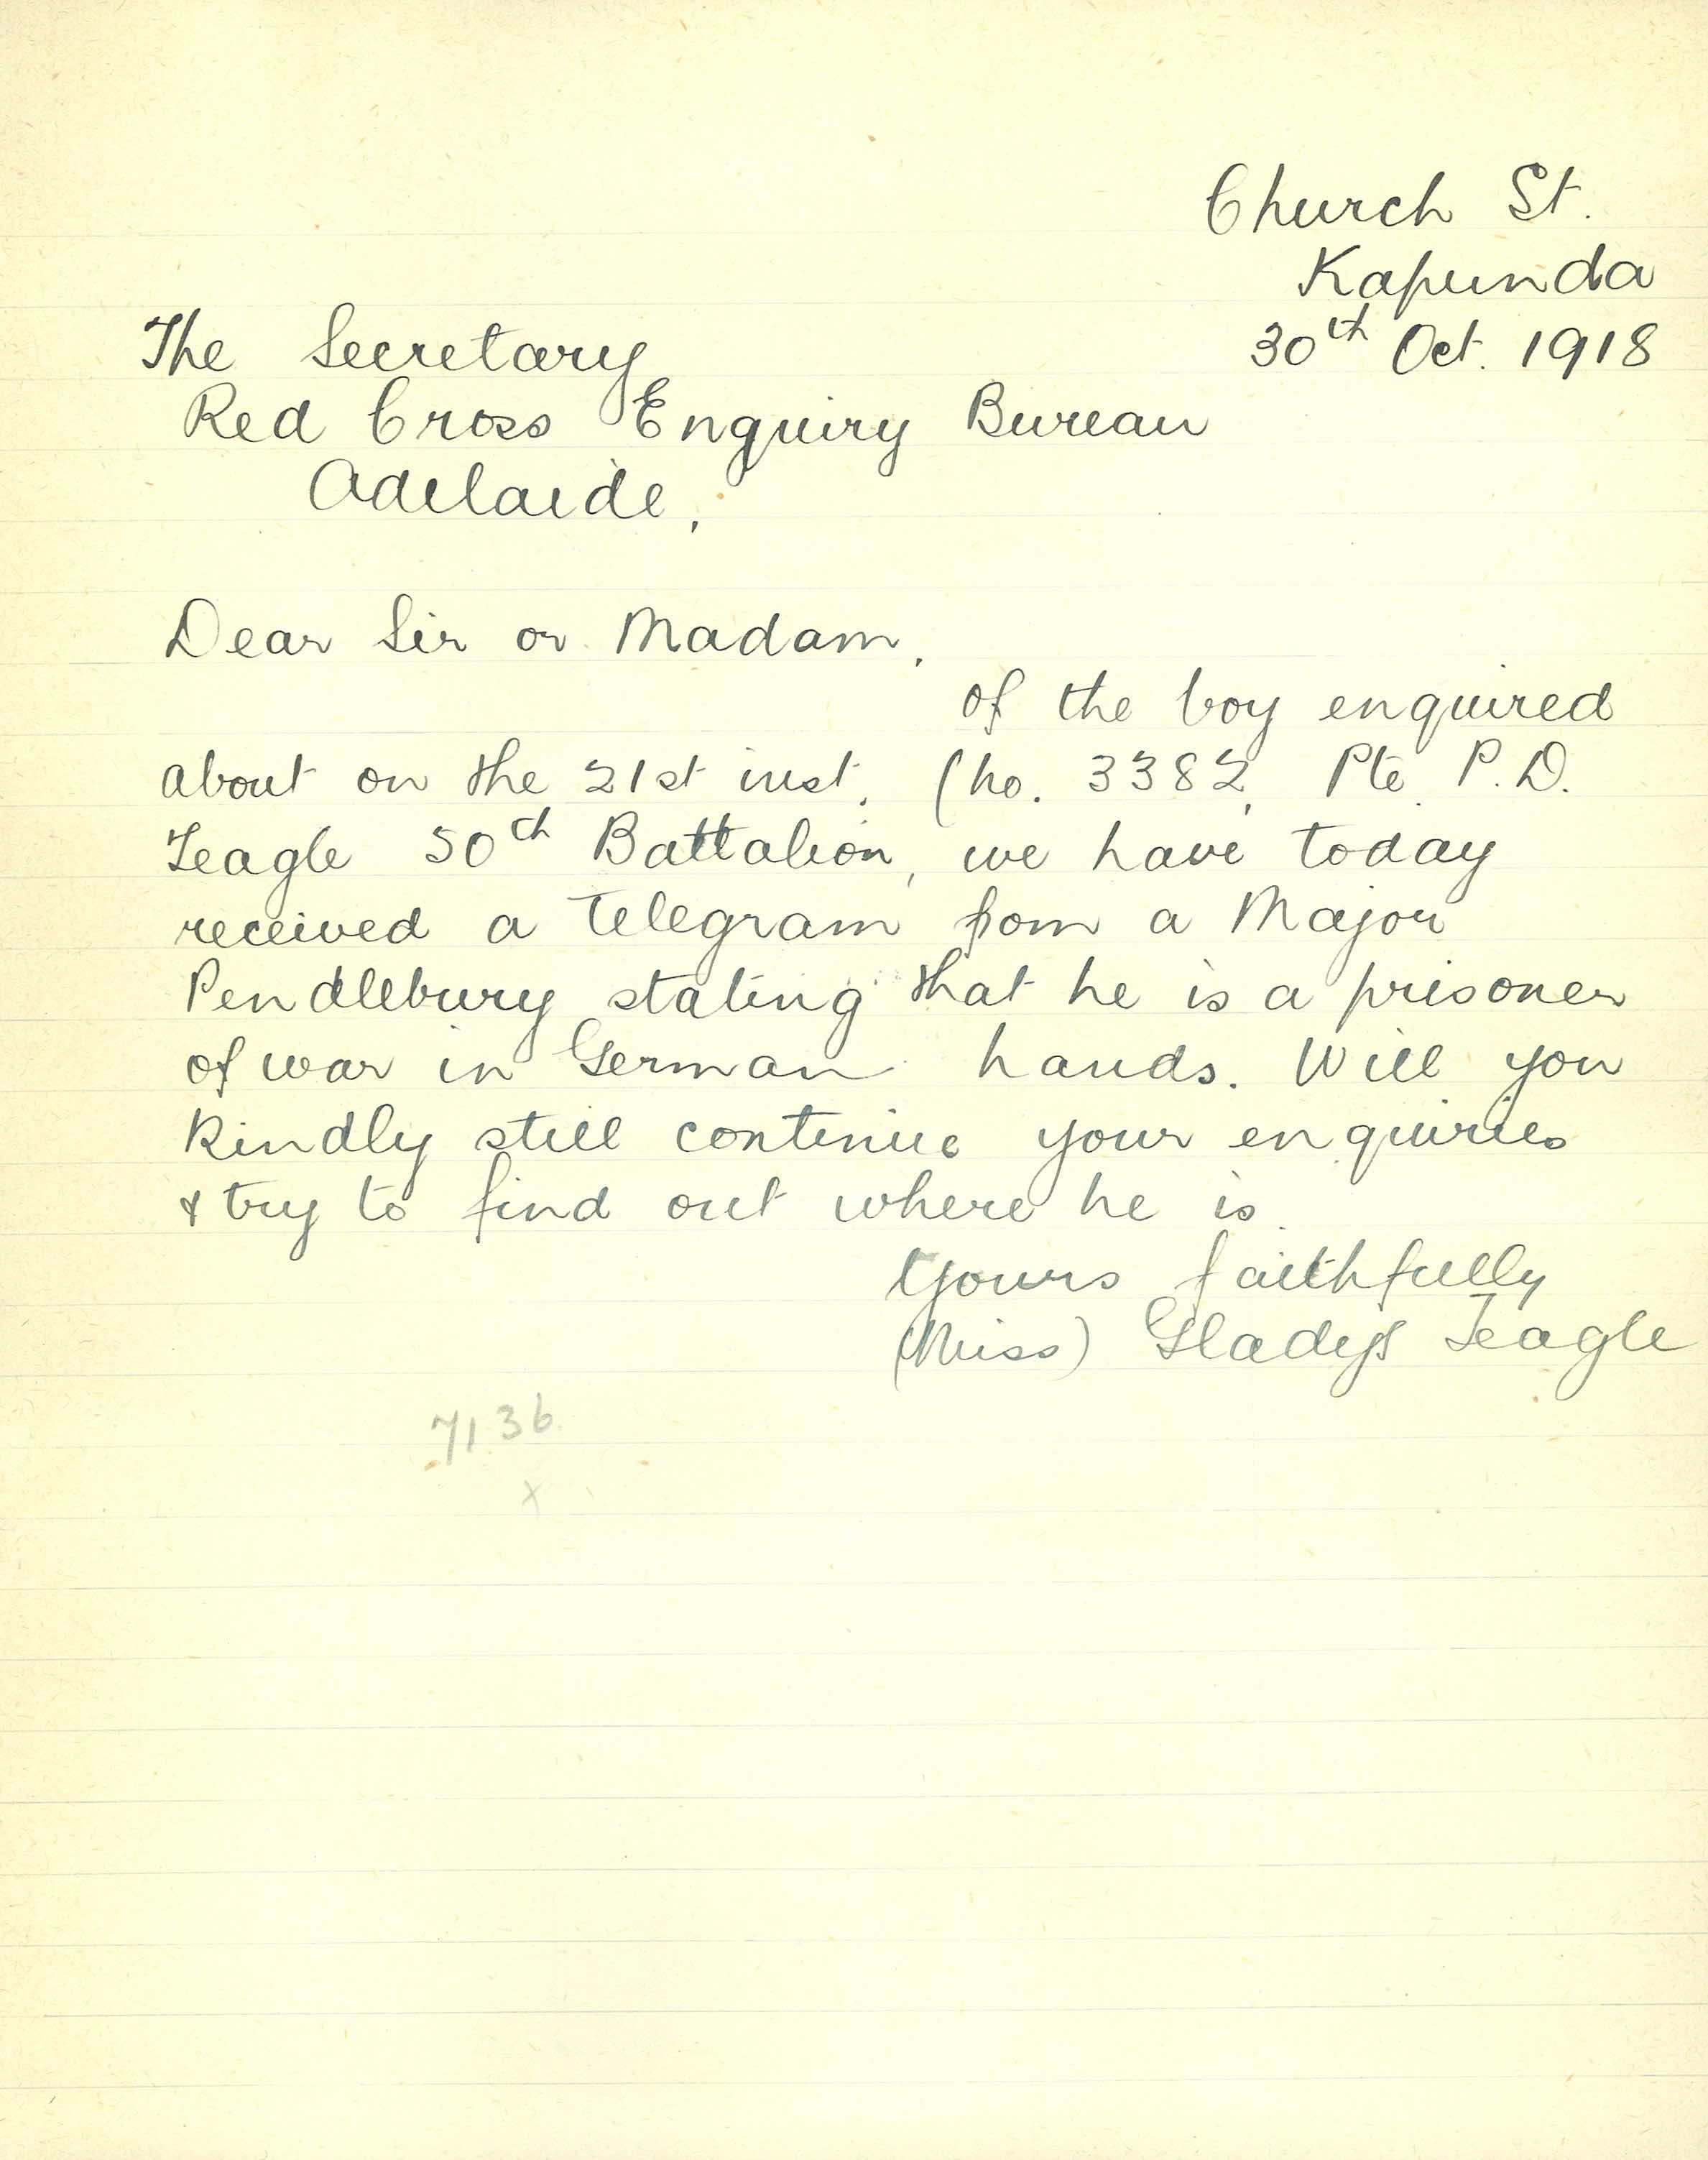 Church St.
Kapunda
30th Oct. 1918
The Secretary
Red Cross Enquiry Bureau
Adelaide,
Dear Sir or Madam,
of the boy enquired
about on the 21st inst, (No. 3382, Pte P.D.
Teagle 50th Battalion, we have today
received a telegram from a Major
Pendlebury stating that he is a prisoner
of war in German hands. Will you
kindly still continue your enquiries
& try to find out where he is.
Yours faithfully
(Miss) Gladys Teagle
7136
x